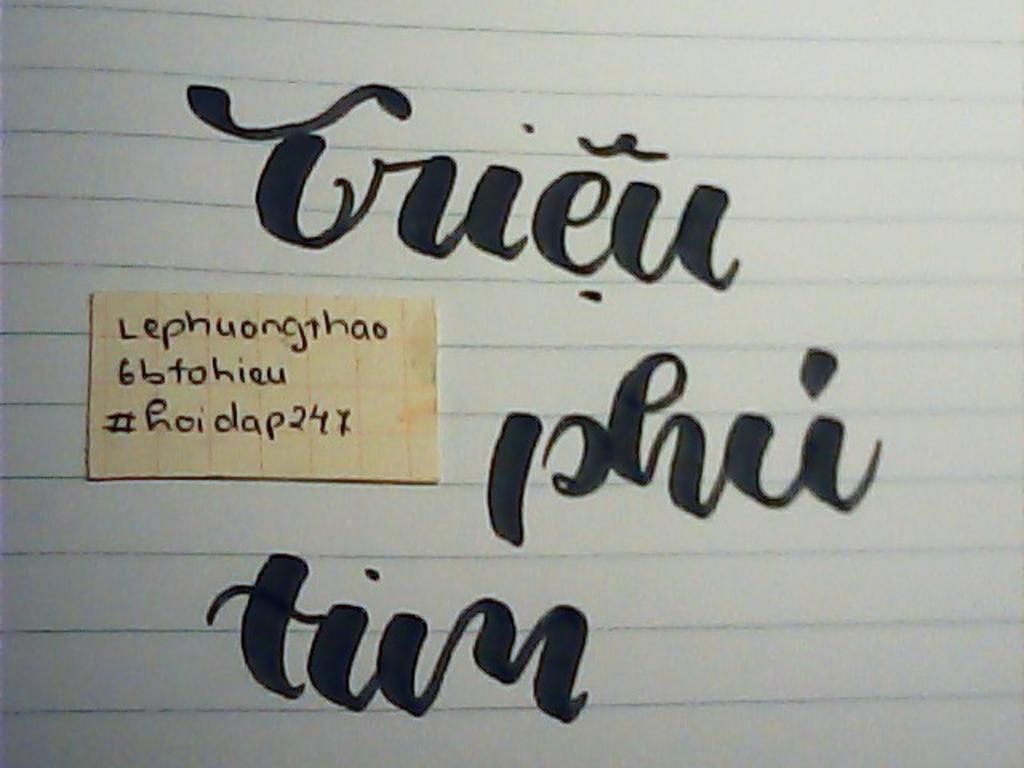 Triệu
Lephuongthao
6btohieu
#hoidap247
phú
tim